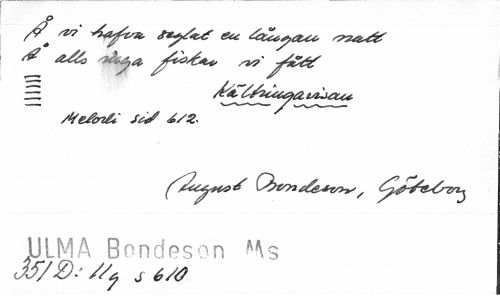 Å vi hafva seglat en långan natt
Å alls inga fiskar vi fått
Kältringavisan
Melodi sid 612.
August Bondeson, Göteborg
ULMA Bondeson Ms
351 D: 11g s 610